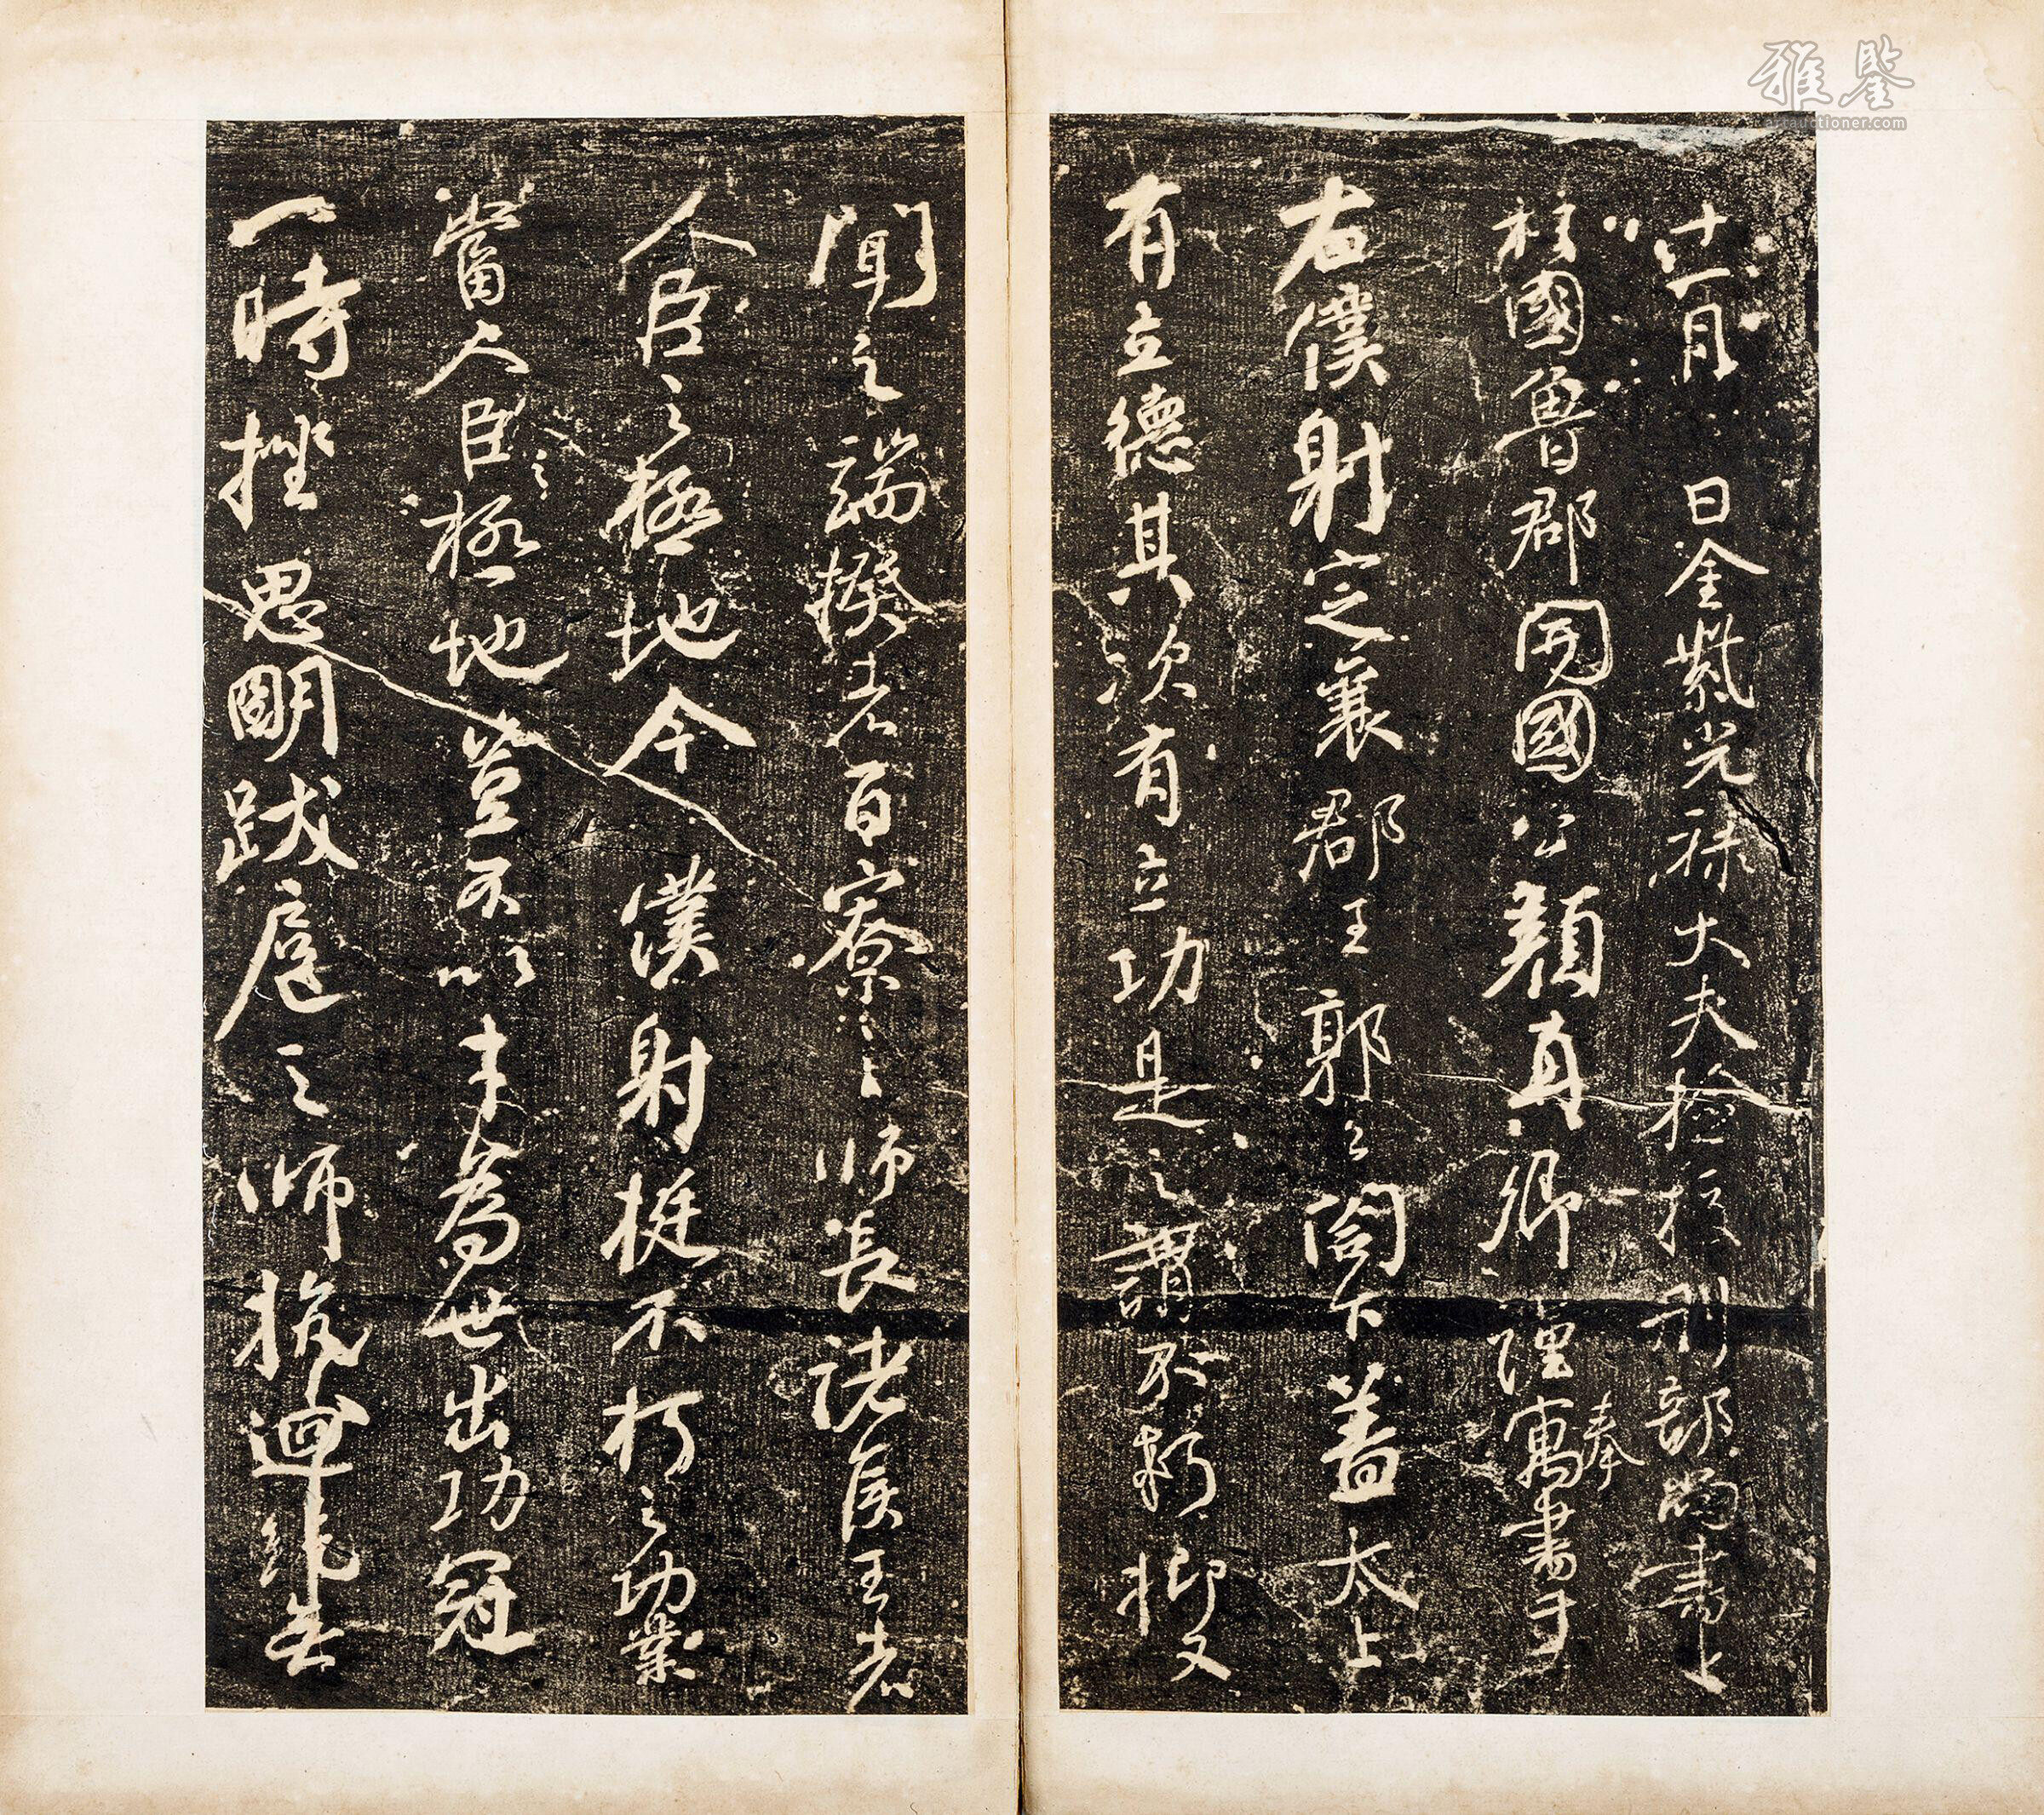 十一月日金紫光祿大夫檢校刑部尚書上
柱國魯郡開國公顏真卿謹奉寓書于
右僕射定襄郡王郭公閤下蓋太上
有立德其次有立功是之謂不朽抑又
聞之端揆者百寮之師長諸侯王者
人臣之極地今僕射挺不朽之功業
當人臣之極地豈不以才為世出功冠
一時挫思明跋扈之師抗迴紇無
雅鑒
artauctioner.com